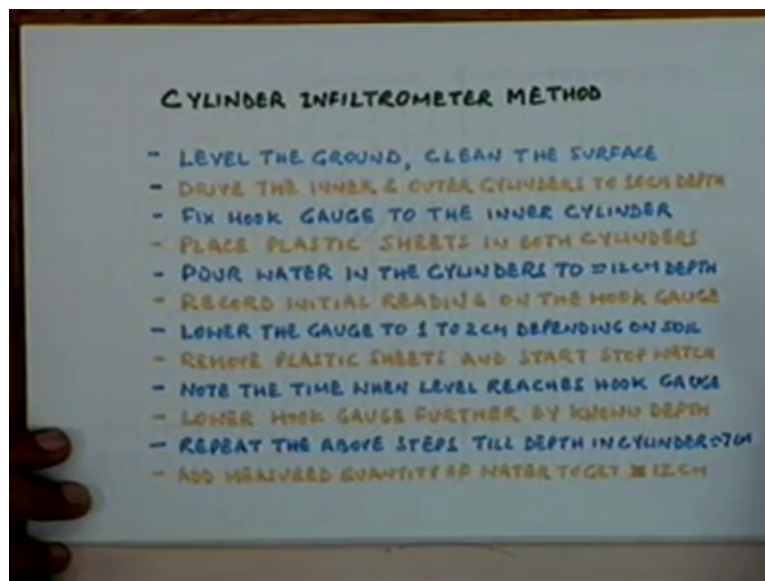 CYLINDER INFILTROMETER METHOD
- LEVEL THE GROUND, CLEAN THE SURFACE
- DRIVE THE INNER & OUTER CYLINDERS TO 10CM DEPTH
- FIX HOOK GAUGE TO THE INNER CYLINDER
- PLACE PLASTIC SHEETS IN BOTH CYLINDERS
- POUR WATER IN THE CYLINDERS TO ≈12CM DEPTH
- RECORD INITIAL READING ON THE HOOK GAUGE
- LOWER THE GAUGE TO 1 TO 2CM DEPENDING ON SOIL
- REMOVE PLASTIC SHEETS AND START STOP WATCH
- NOTE THE TIME WHEN LEVEL REACHES HOOK GAUGE
- LOWER HOOK GAUGE FURTHER BY KNOWN DEPTH
- REPEAT THE ABOVE STEPS TILL DEPTH IN CYLINDER≈7CM
- ADD MEASURED QUANTITY OF WATER TO GET ≈ 12CM